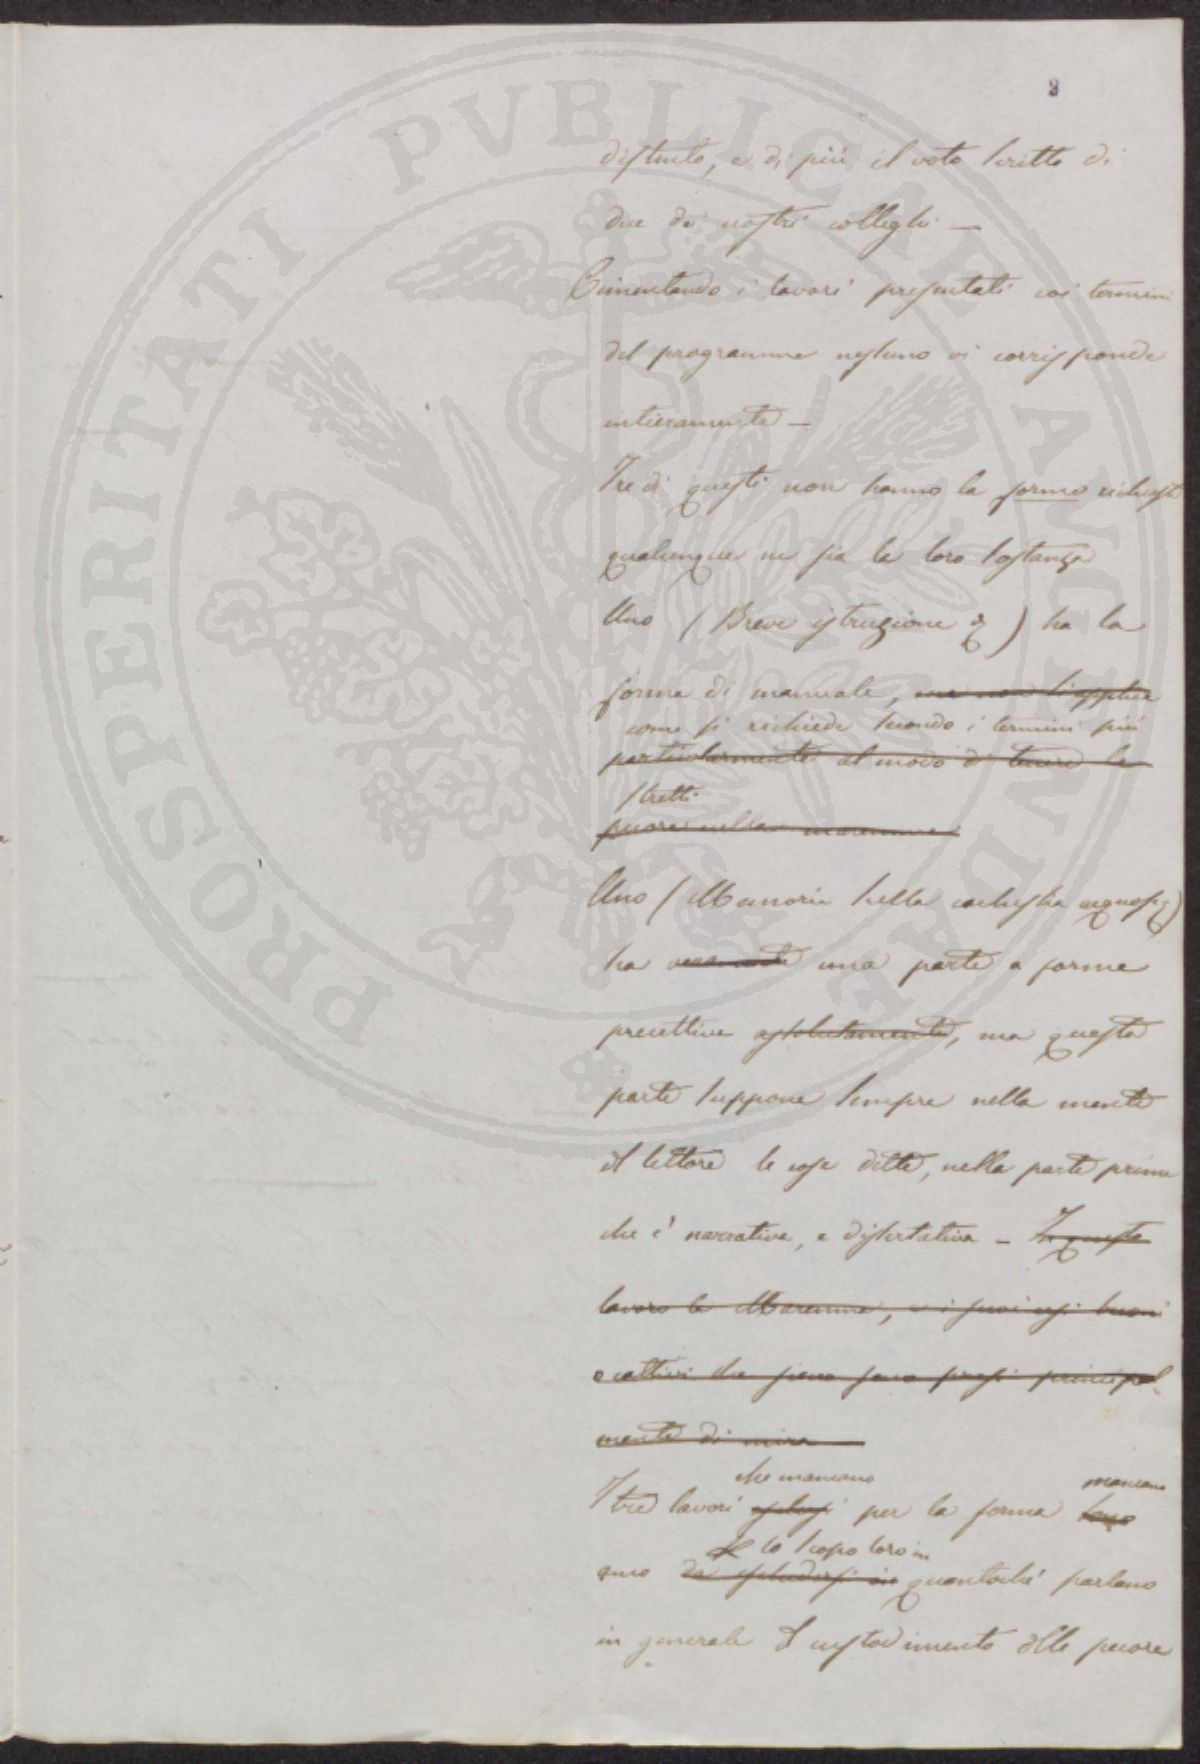 PROSPERITATI PVBLICAE AVGENDAE
distinto, e di più il voto scritto di
due dei nostri colleghi —
Cimentando i lavori presentati coi termini
del programma nessuno vi corrisponde
intieramente —
Tre di questi non hanno la forma richiesta
qualunque ne sia la loro sostanza
Uno (Breve istruzione &) ha la
forma di manuale, ma non l'applica
come si richiede secondo i termini più
particolarmente al modo di tenere le
stretti
pecore nella maremma
Uno (Memoria sulla cachessia acquosa &)
ha veramente una parte a forma
precettiva assolutamente, ma questa
parte suppone sempre nella mente
d lettore le cose dette, nella parte prima
che è narrativa, e dissertativa — In questo
lavoro la Maremma, e i suoi usi buoni
o cattivi che sieno sono presi principal-
mente di mira
che mancano mancano
I tre lavori esclusi per la forma sono
lo scopo loro in
anco da escludersi in quantochè parlano
in generale d custodimento delle pecore